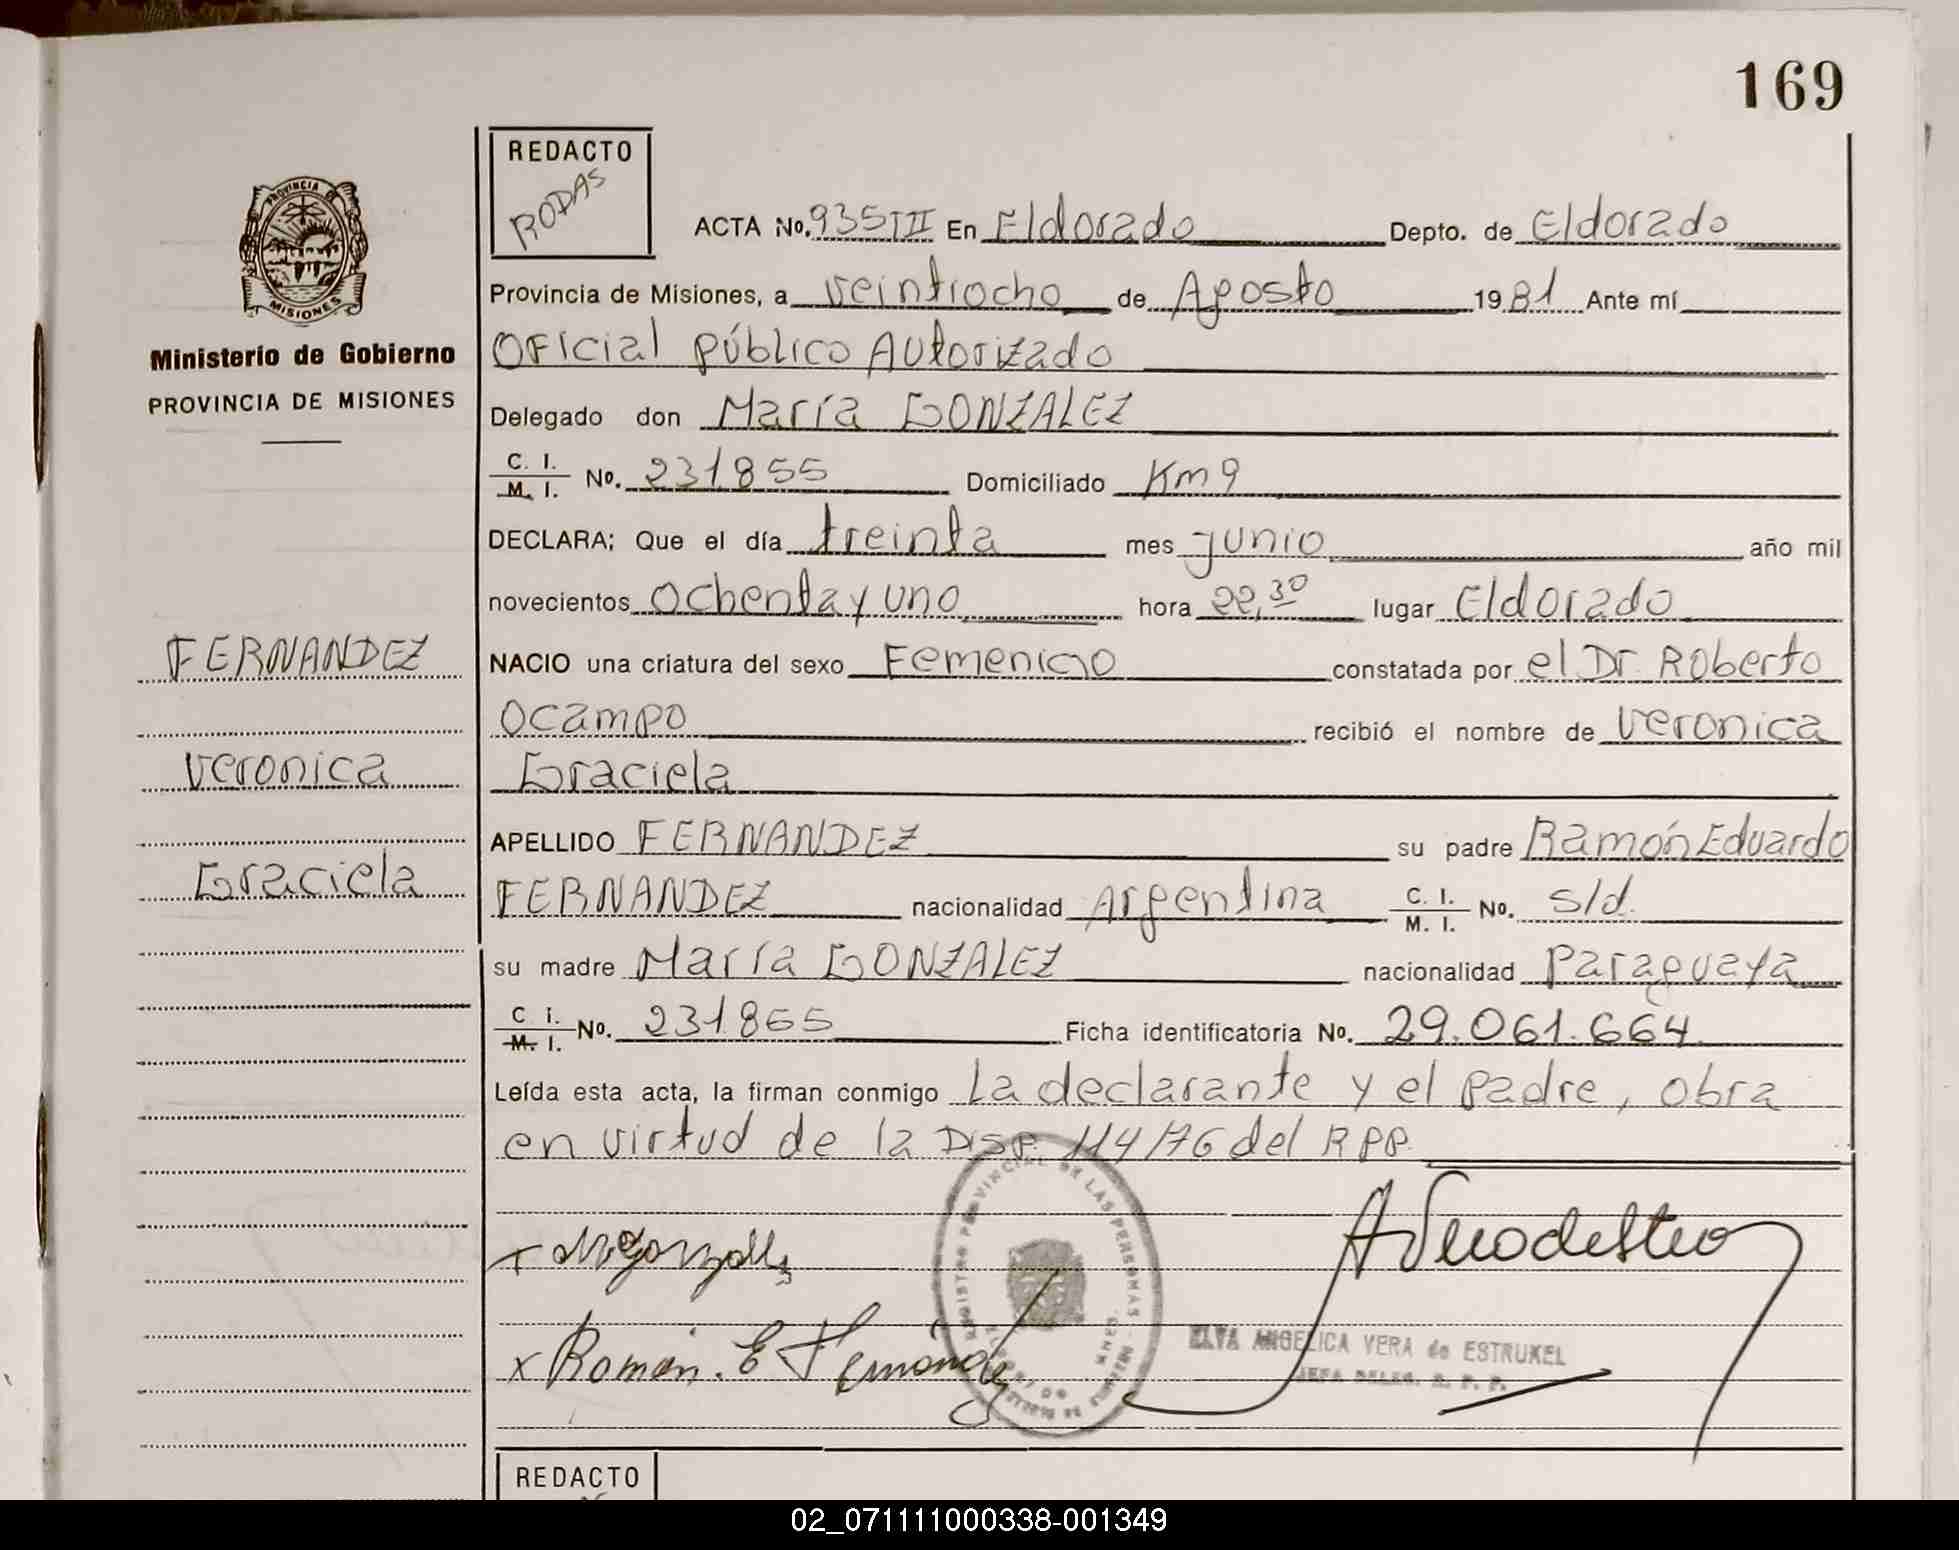 169
REDACTO
RODAS
PROVINCIA DE
MISIONES
Ministerio de Gobierno
PROVINCIA DE MISIONES
ACTA No. 935 III En Eldorado Depto. de Eldorado
Provincia de Misiones, a veintiocho de Agosto 1981 Ante mí
Oficial público Autorizado
Delegado don María GONZALEZ
C. I.
M. I. No. 231.855 Domiciliado Km 9
DECLARA; Que el día treinta mes junio año mil
novecientos ochenta y uno hora 22,30 lugar Eldorado
FERNANDEZ
NACIO una criatura del sexo Femenino constatada por el Dr. Roberto
Ocampo recibió el nombre de Veronica
Veronica
Graciela
APELLIDO FERNANDEZ su padre Ramón Eduardo
Graciela
FERNANDEZ nacionalidad Argentina C. I. M. I. No. s/d.
su madre María GONZALEZ nacionalidad Paraguaya
C. I.
M. I. No. 231.855 Ficha identificatoria No. 29.061.664
Leída esta acta, la firman conmigo La declarante y el padre, obra
en virtud de la Disp. 114/76 del RPP.
REGISTRO PROVINCIAL DE LAS PERSONAS
x Roman. E Fernandez
ELVA ANGELICA VERA de ESTRUKEL
JEFA DELEG. R. P. P.
REDACTO
02_071111000338-001349